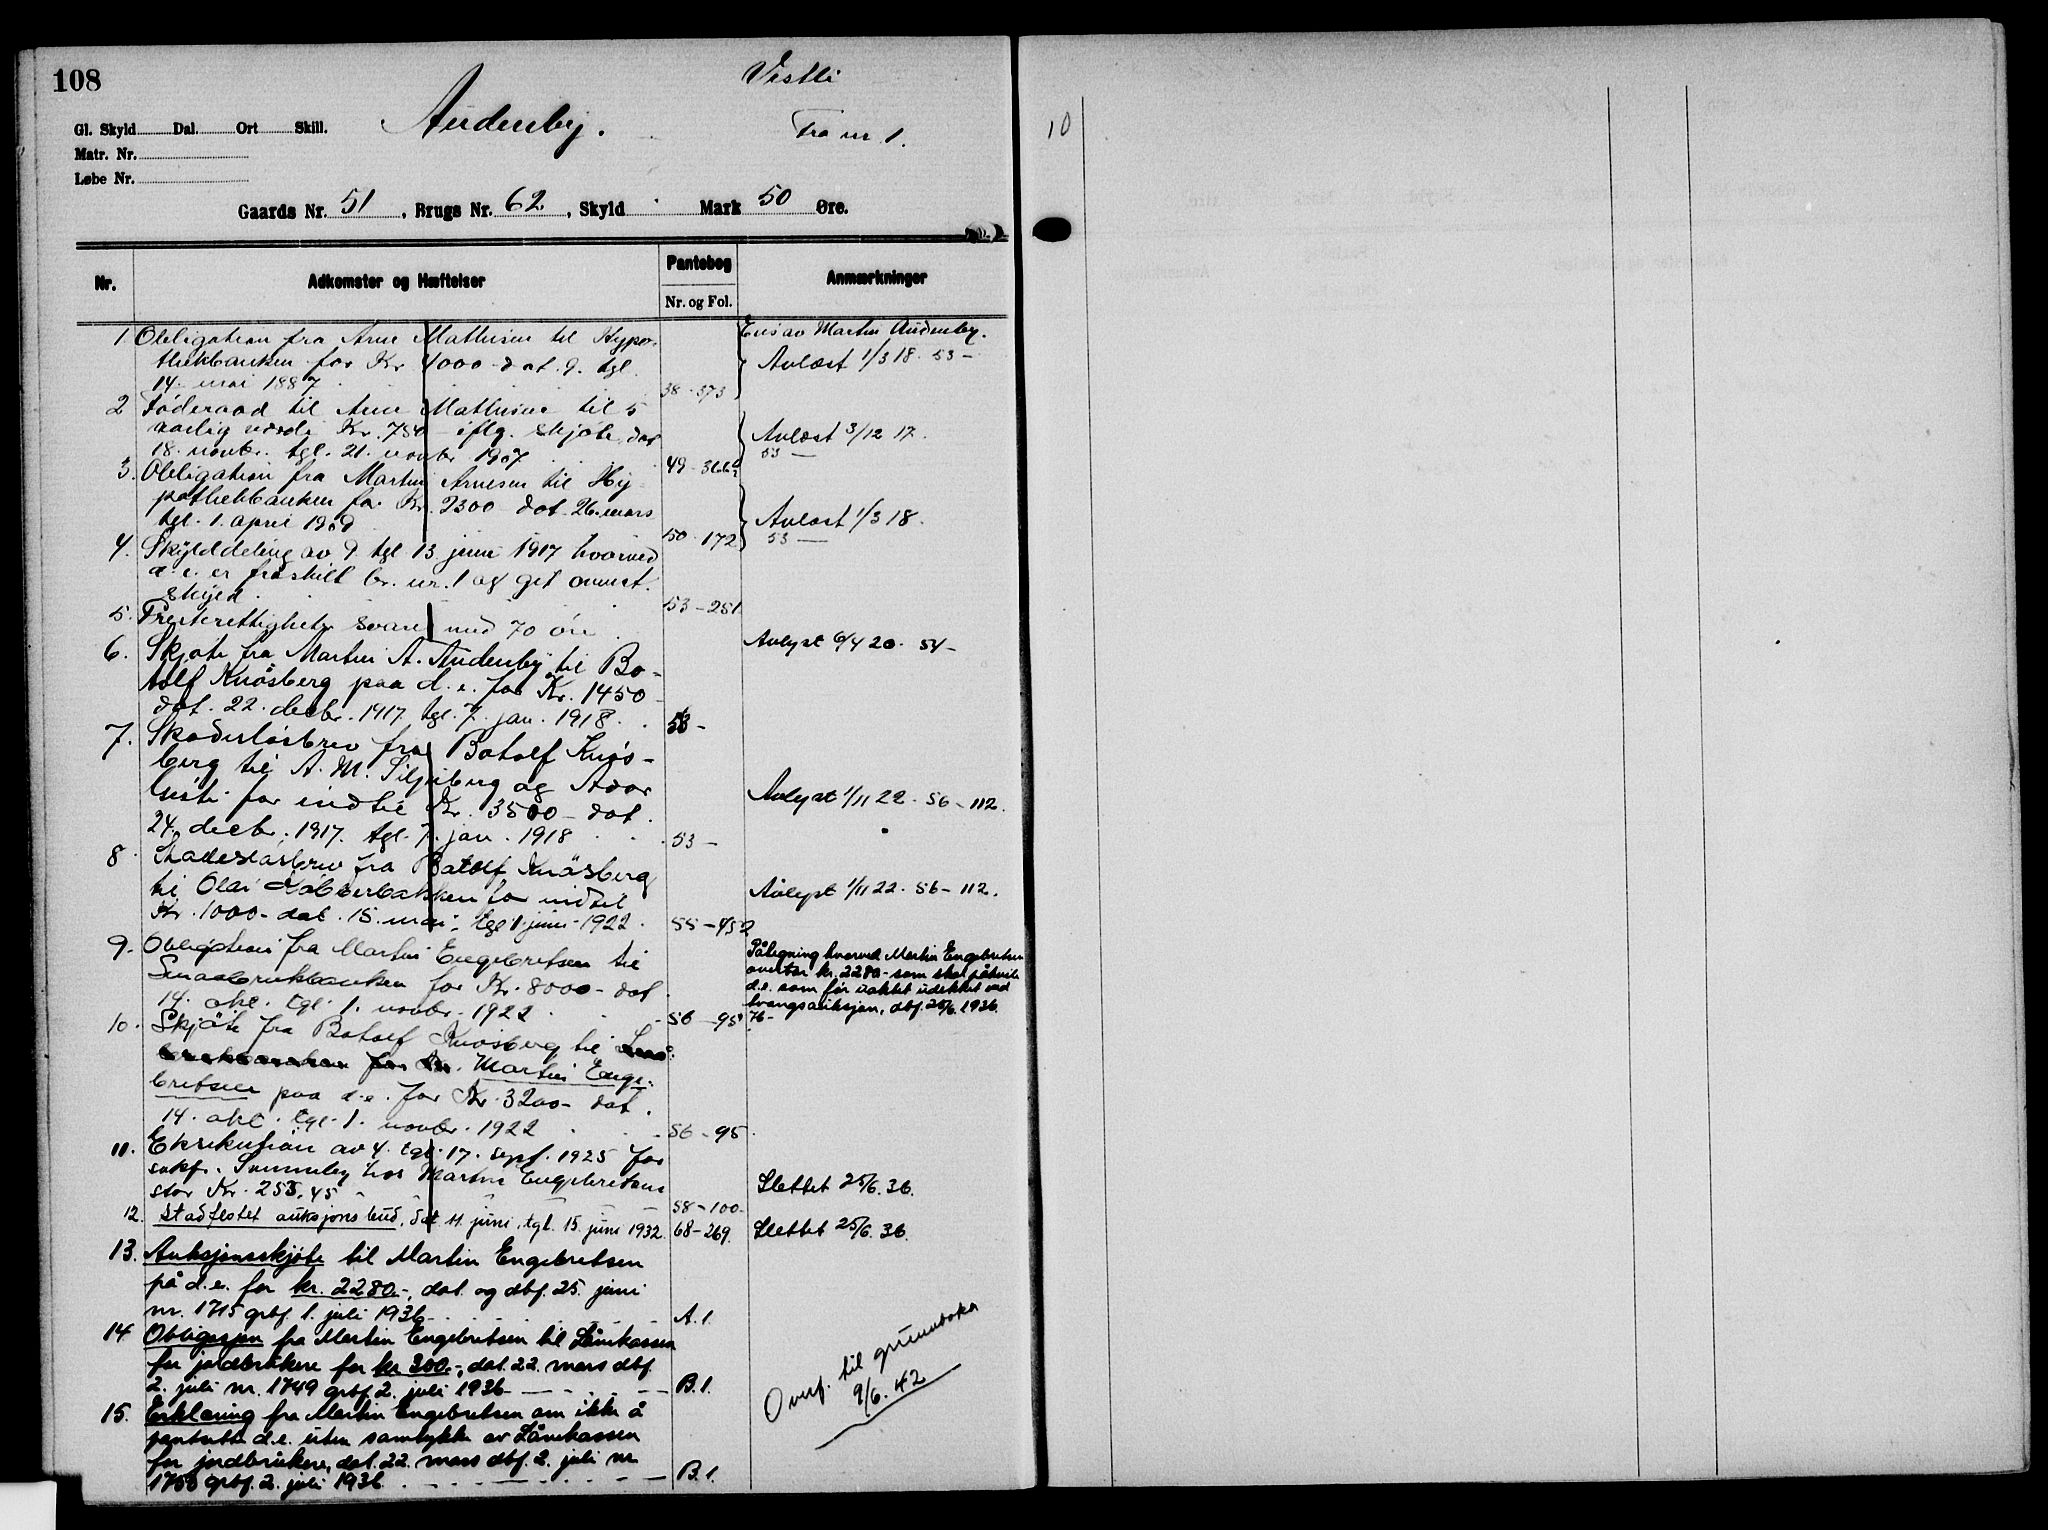 108
Vestli
Gl. Skyld Dal. Ort Skill.
Audenby.
Fra nr 1.
Matr. Nr.
Løbe Nr.
Gaards Nr. 51, Brugs Nr. 62, Skyld Mark 50 Øre.
10
Nr. Adkomster og Hæftelser Pantebog Nr. og Fol. Anmærkninger
1 Obligation fra Arne Mathisen til Hypo-
thekbanken for Kr 4000 dat. 9. tgl.
14. mai 1887 38-373
Eies av Martin Audenby.
Avlæst 1/3 18. 53 -
2 Føderaad til Arne Mathisen til 5
aarlig værdi Kr. 750 - iflg. skjøte dat
18. novbr. tgl. 21. novbr 1907 49-366
Avlæst 3/12 17.
53 -
3. Obligation fra Martin Arnesen til Hy-
pothekbanken for Kr. 2300 dat. 26. mars
tgl. 1. april 1909 50-172
Avlæst 1/3 18.
53 -
4. Skylddeling av 9. tgl. 13 juni 1917 hvorved
d. e. er fraskilt br. nr. 1 og git anmerkt
skyld. 53-251
5. Fresterettigheter svare med 70 øre.
6. Skjøte fra Martin A. Audenby til Bo-
tolf Knøsberg paa d. e. for Kr. 1450
dat. 22. decbr. 1917 tgl. 7. jan. 1918. 53 -
Avlyst 6/4 20. 54 -
7. Skadesløsbrev fra Botolf Knøs-
berg til A. M. Siljuberg og
for indtil Kr. 3500 - dat.
24. decbr. 1917. tgl. 7. jan. 1918 53 -
Avlyst 1/11 22. 56 - 112.
8. Skadesløsbrev fra Botolf Knøsberg
til Olai for indtil
Kr. 1000 - dat. 15. mai, tgl 1 juni 1922. 55-432
Avlyst 1/11 22. 56 - 112.
9. Obligation fra Martin Engebretsen til
Smaabrukbanken for Kr. 8000 - dat
14. okt. tgl. 1. novbr. 1922 56-95
Påtegning hvorved Martin Engebretsen
overtar kr. 2280.- som skal påhvile
d.e. som før vaktet udekket ved
tvangsauksjon, dbf. 25/6. 1936.
76 -
10. Skjøte fra Botolf Knøsberg til Små-
brukbanken for Kr. Martin Enge-
bretsen paa d. e. for Kr. 3200 - dat.
14. okt. tgl. 1. novbr. 1922 56-95
11. Eksekusion av 4. tgl. 17. sept. 1925 for
sakf. hos Martin Engebretsen
stor Kr. 253,45 58-100
Slettet 25/6. 36.
12. Stadfestet auksjonsbud, dat. 11. juni, tgl. 15. juni 1932. 68-269.
Slettet 25/6. 36.
13. Auksjonsskjøte til Martin Engebretsen
på d.e. for kr. 2280.-, dat. og dbf. 25. juni
nr. 1715 grbf. 1. juli 1936 A.1.
14 Obligasjon fra Martin Engebretsen til Lånekassen
for jordbrukere for kr. 200.-, dat. 22. mars dbf.
2. juli nr. 1749 grbf. 2. juli 1936 B.1.
15. Erklæring fra Martin Engebretsen om ikke å
pantsette d.e. uten samtykke av Lånekassen
for jordbrukere, dat. 22. mars dbf. 2. juli nr.
1750 grbf. 2. juli 1936. B.1.
Overf. til grunnboka
9/6. 42